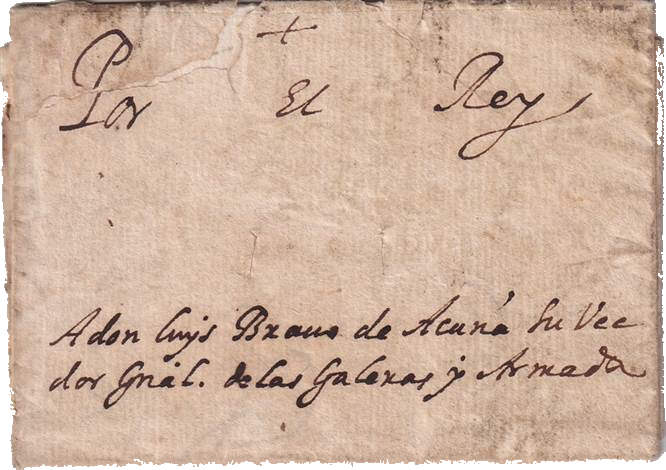 +
Por El Rey
A don luys Brauo de Acuña Su Vee
dor Gnãl. de las Galeras y Armada